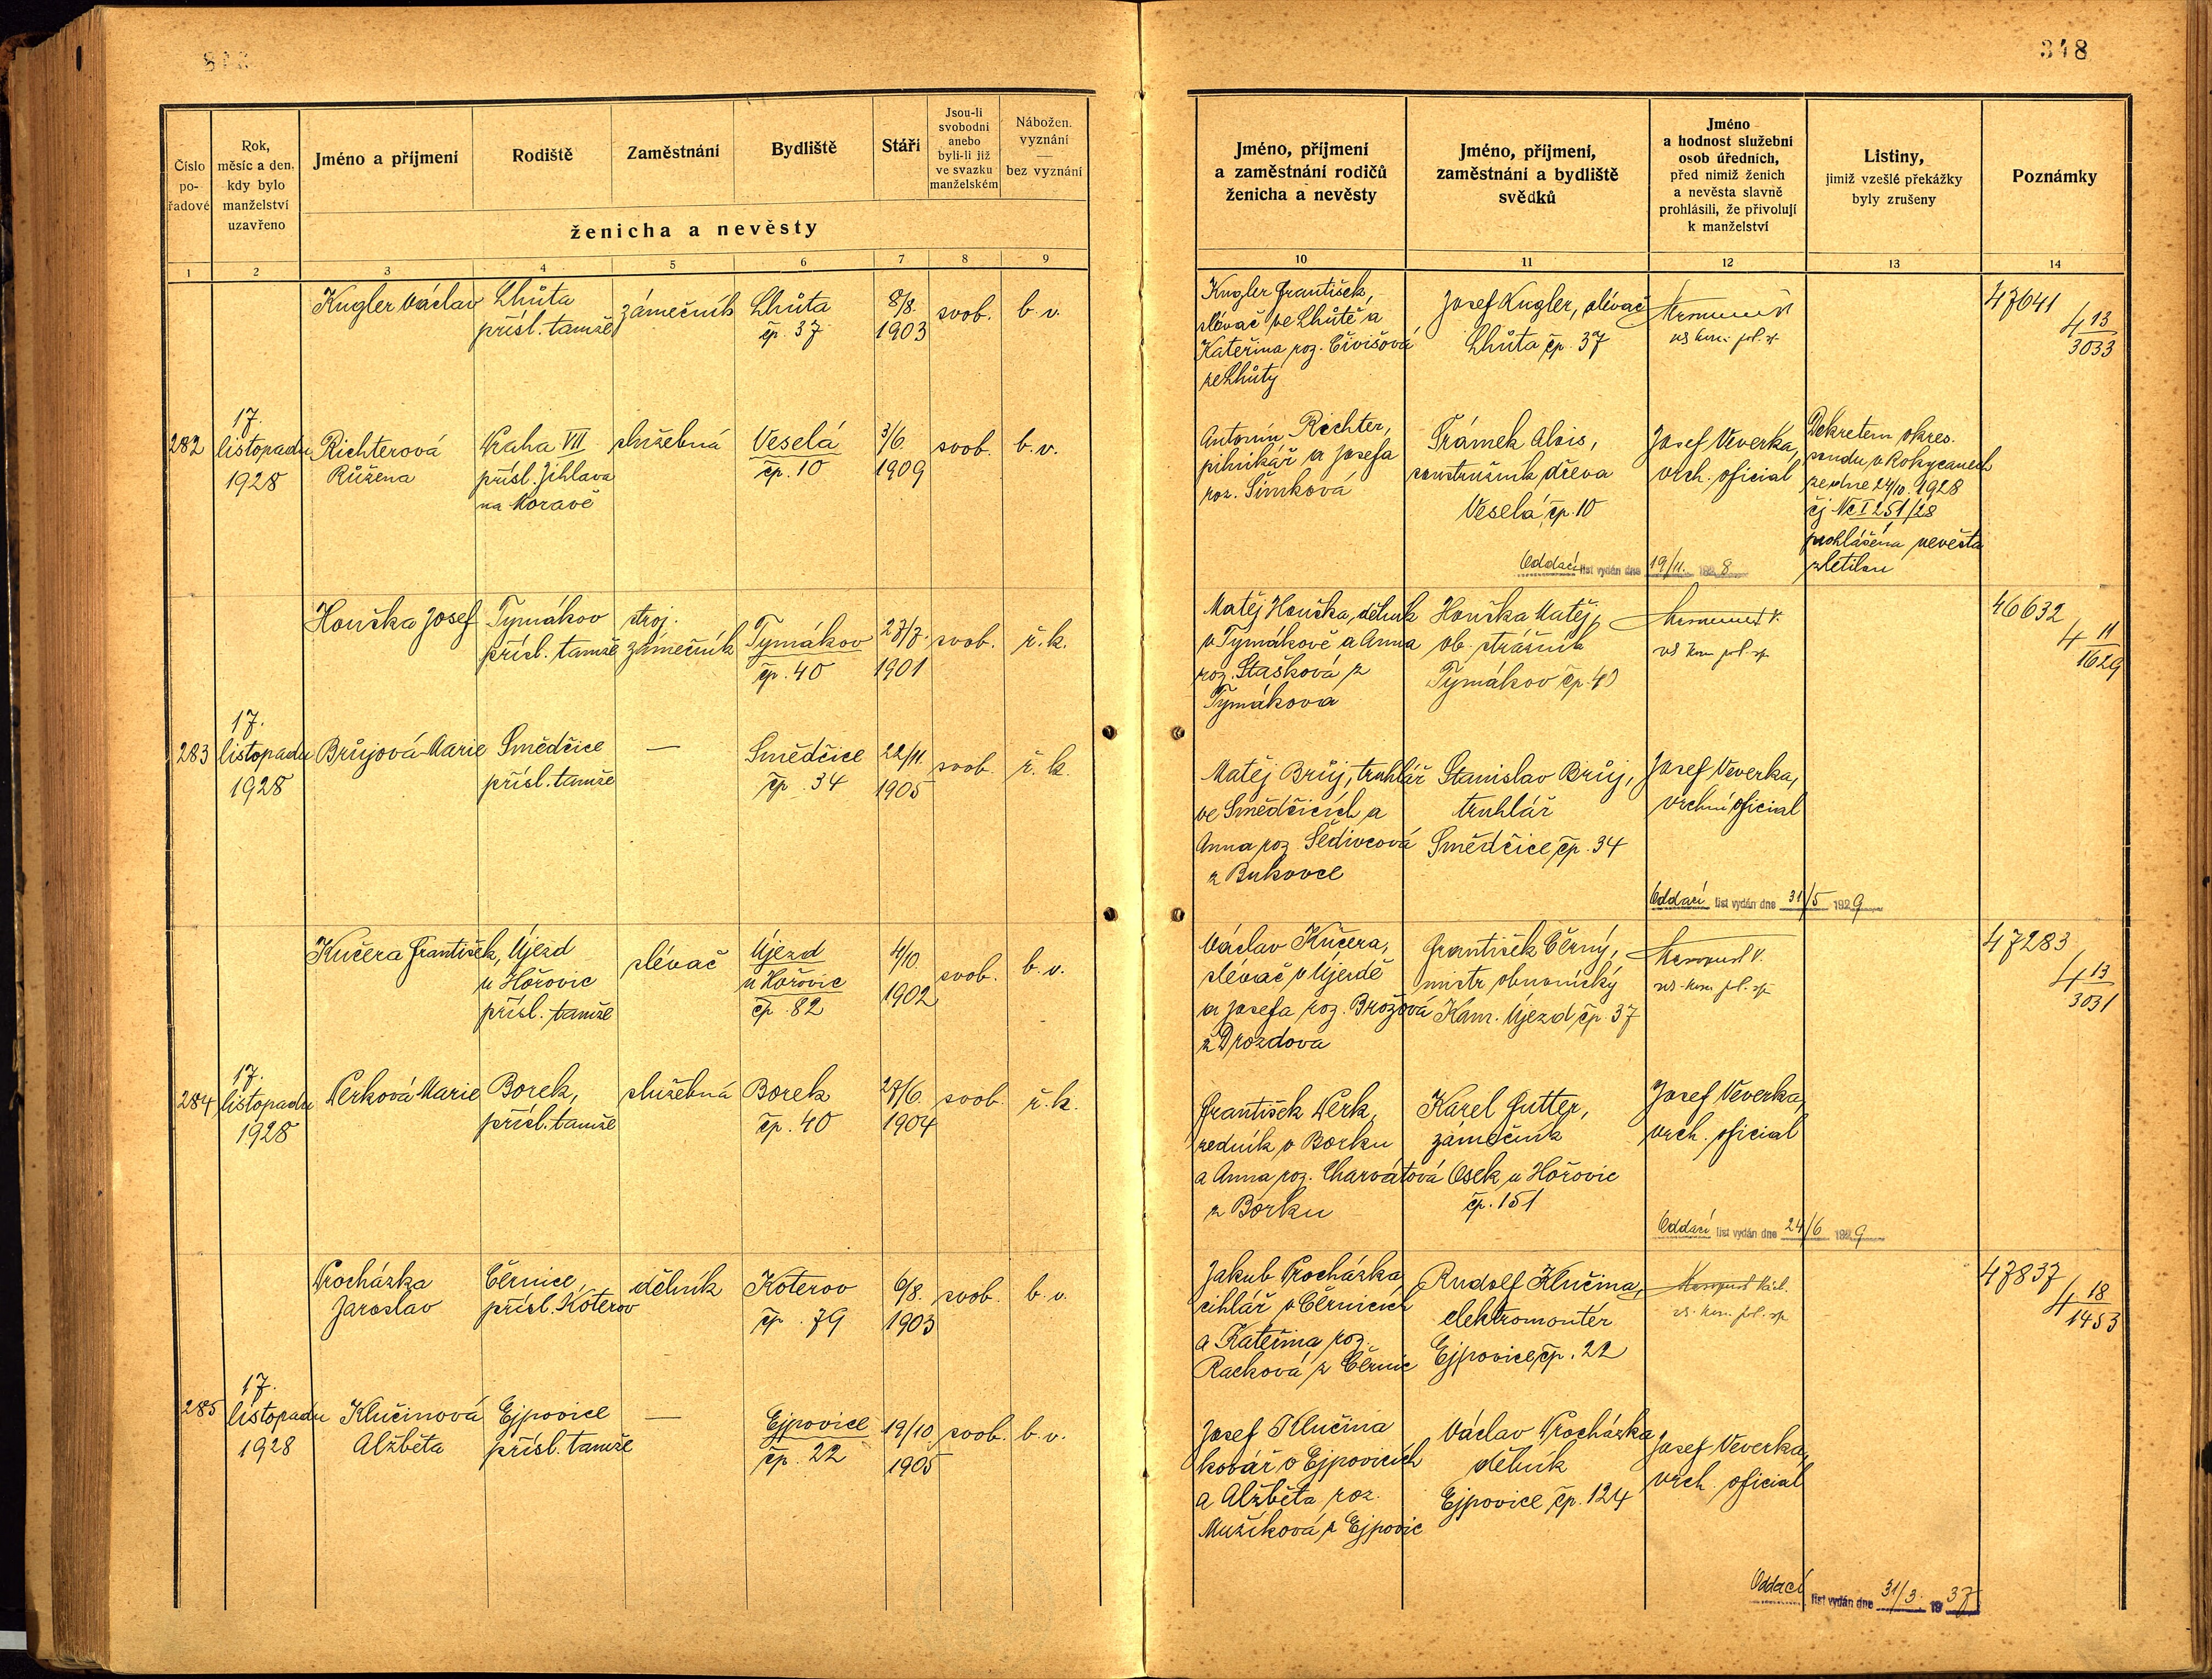 348
Číslo
po-
řadové
Rok,
měsíc a den,
kdy bylo
manželství
uzavřeno
Jméno a příjmení
Rodiště
Zaměstnání
Bydliště
Stáří
Jsou-li
svobodni
anebo
byli-li již
ve svazku
manželském
Nábožen.
vyznání
—
bez vyznání
ženicha a nevěsty
Jméno, příjmení
a zaměstnání rodičů
ženicha a nevěsty
Jméno, příjmení,
zaměstnání a bydliště
svědků
Jméno
a hodnost služební
osob úředních,
před nimiž ženich
a nevěsta slavně
prohlásili, že přivolují
k manželství
Listiny,
jimiž vzešlé překážky
byly zrušeny
Poznámky
1 2 3 4 5 6 7 8 9
10 11 12 13 14
Kugler Václav
Lhůta
přísl. tamže
zámečník
Lhůta
čp. 37
8/8.
1903
svob.
b. v.
Kugler František,
slévač ve Lhůtě a
Kateřina roz. Čivišová
ze Lhůty
Josef Kugler, slévač
Lhůta čp. 37
47641
4 13
3033
282
17.
listopadu
1928
Richterová
Růžena
Praha VII
přísl. Jihlava
na Moravě
služebná
Veselá
čp. 10
3/6.
1909
svob.
b. v.
Antonín Richter,
pilnikář a Josefa
roz. Šimková
Trámek Alois,
soustružník dřeva
Veselá, čp. 10
Josef Veverka,
vrch. oficial
Dekretem okres.
soudu v Rokycanech
ze dne 24/10. 1928
čj. Nc I 251/28
prohlášena nevěsta
zletilou
Oddací list vydán dne 19/11. 1928
Houška Josef
Tymákov
přísl. tamže
stroj.
zámečník
Tymákov
čp. 40
27/7.
1901
svob.
ř. k.
Matěj Houška, dělník
v Tymákově a Anna
roz. Stašková z
Tymákova
Houška Matěj,
ob. strážník
Tymákov čp. 40
46632
4 11
1629
283
17.
listopadu
1928
Brůjová Marie
Smědčice
přísl. tamže
—
Smědčice
čp. 34
22/11.
1905
svob.
ř. k.
Matěj Brůj, truhlář
ve Smědčicích a
Anna roz. Šedivcová
z Bukovce
Stanislav Brůj,
truhlář
Smědčice, čp. 34
Josef Veverka,
vrchní oficial
Oddací list vydán dne 31/5 1929
Kučera František,
Újezd
u Hořovic
přísl. tamže
slévač
Újezd
u Hořovic
čp. 82
4/10.
1902
svob.
b. v.
Václav Kučera,
slévač v Újezdě
a Josefa roz. Brožová
z Drozdova
František Černý,
mistr obuvnický
Kam. Újezd čp. 37
47283
4 13
3031
284
17.
listopadu
1928
Perková Marie
Borek,
přísl. tamže
služebná
Borek
čp. 40
27/6.
1904
svob.
ř. k.
František Perk,
zedník v Borku
a Anna roz. Charvátová
z Borku
Karel Futter,
zámečník
Osek u Hořovic
čp. 151
Josef Veverka,
vrch. oficial
Oddací list vydán dne 24/6 1929
Procházka
Jaroslav
Černice,
přísl. Koterov
dělník
Koterov
čp. 79
6/8.
1903
svob.
b. v.
Jakub Procházka
cihlář v Černicích
a Kateřina roz.
Racková z Černic
Rudolf Klučina,
elektromontér
Ejpovice, čp. 22
47837
4 18
1453
285
17.
listopadu
1928
Klučinová
Alžběta
Ejpovice
přísl. tamže
—
Ejpovice
čp. 22
19/10
1905
svob.
b. v.
Josef Klučina
kovář v Ejpovicích
a Alžběta roz.
Mužíková z Ejpovic
Václav Procházka
dělník
Ejpovice čp. 124
Josef Veverka,
vrch. oficial
Oddací list vydán dne 31/3. 1937